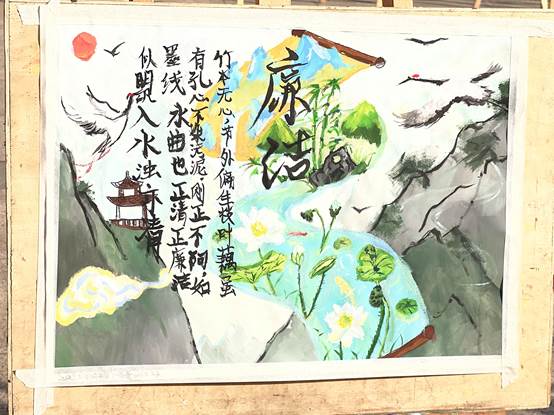 廉洁
竹本无心,节外偏生枝叶.藕虽
有孔心不染污泥.刚正不阿.如
墨线 曲也正清正廉洁
似明矾入水浊亦清